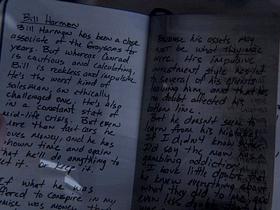 Bill Harmon
Bill Harmon has been a close
associate of the Graysons for
years. But whereas Conrad
is cautious and calculating,
Bill is reckless and impulsive.
He's the worst kind of
salesman, an ethically
challenged one. He's also
in a constant state of
mid-life crisis. But even
more than fast cars he
loves money, and he has
known time and again
that he'll do anything to
get it.
If what he was
offered to conspire in my
Because his assets may
not be what they once
were. His impulsive
investment style has led
to several of his clients
leaving him, and that has
no doubt affected his
bottom line.
But he doesn't seem to
learn from his mistakes.
I didn't know
Did say the man has
gambling addiction
I have little doubt that
he knew everything about
what they did to me, and